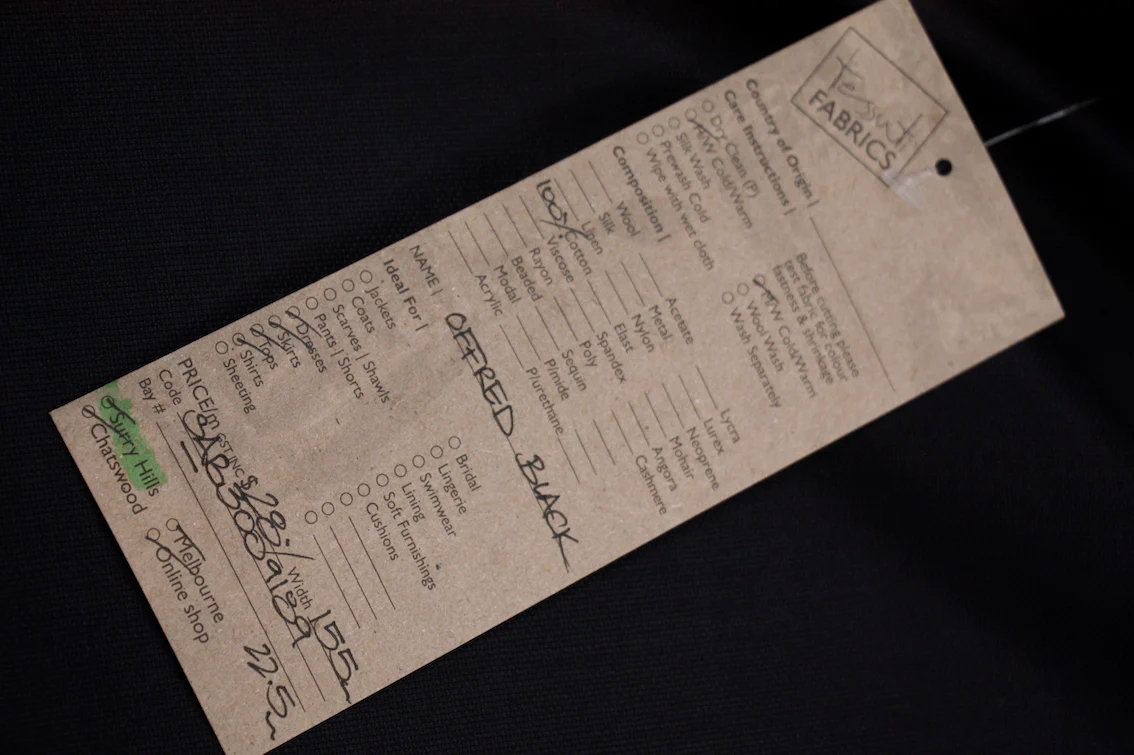 Tessuti
FABRICS
Country of Origin |
Care Instructions |
Dry Clean (P)
H/W Cold/Warm
Silk Wash
Prewash Cold
Wipe with wet cloth
Before cutting please
test fabric for colour
fastness & shrinkage
M/W Cold/Warm
Wool Wash
Wash Separately
Composition |
Wool
Silk
Linen
100% Cotton
Viscose
Rayon
Beaded
Modal
Acrylic
Acetate
Metal
Nylon
Elast
Spandex
Poly
Sequin
P/mide
P/urethane
Lycra
Lurex
Neoprene
Mohair
Angora
Cashmere
NAME | OFFRED BLACK
Ideal For |
Jackets
Coats
Scarves | Shawls
Pants | Shorts
Dresses
Skirts
Tops
Shirts
Sheeting
Bridal
Lingerie
Swimwear
Lining
Soft Furnishings
Cushions
PRICE/m GST INC $ 29.- Width 155m
Code
Bay #
Surry Hills
Chatswood
Melbourne
Online shop
22.5m